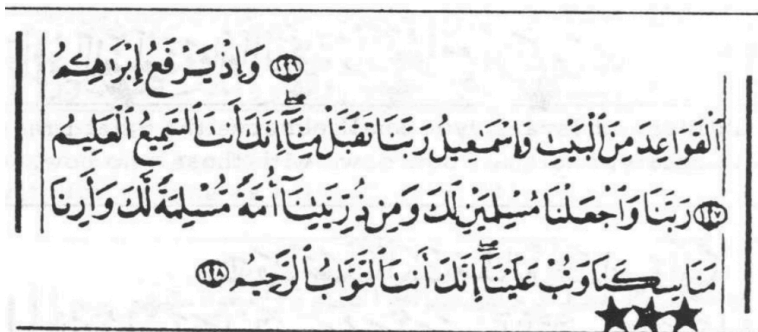 ١٢٦ وَإِذْ يَرْفَعُ إِبْرَٰهِـۧمُ
ٱلْقَوَاعِدَ مِنَ ٱلْبَيْتِ وَإِسْمَٰعِيلُ رَبَّنَا تَقَبَّلْ مِنَّآ ۖ إِنَّكَ أَنتَ ٱلسَّمِيعُ ٱلْعَلِيمُ
١٢٧ رَبَّنَا وَٱجْعَلْنَا مُسْلِمَيْنِ لَكَ وَمِن ذُرِّيَّتِنَآ أُمَّةً مُّسْلِمَةً لَّكَ وَأَرِنَا
مَنَاسِكَنَا وَتُبْ عَلَيْنَآ ۖ إِنَّكَ أَنتَ ٱلتَّوَّابُ ٱلرَّحِيمُ ١٢٨